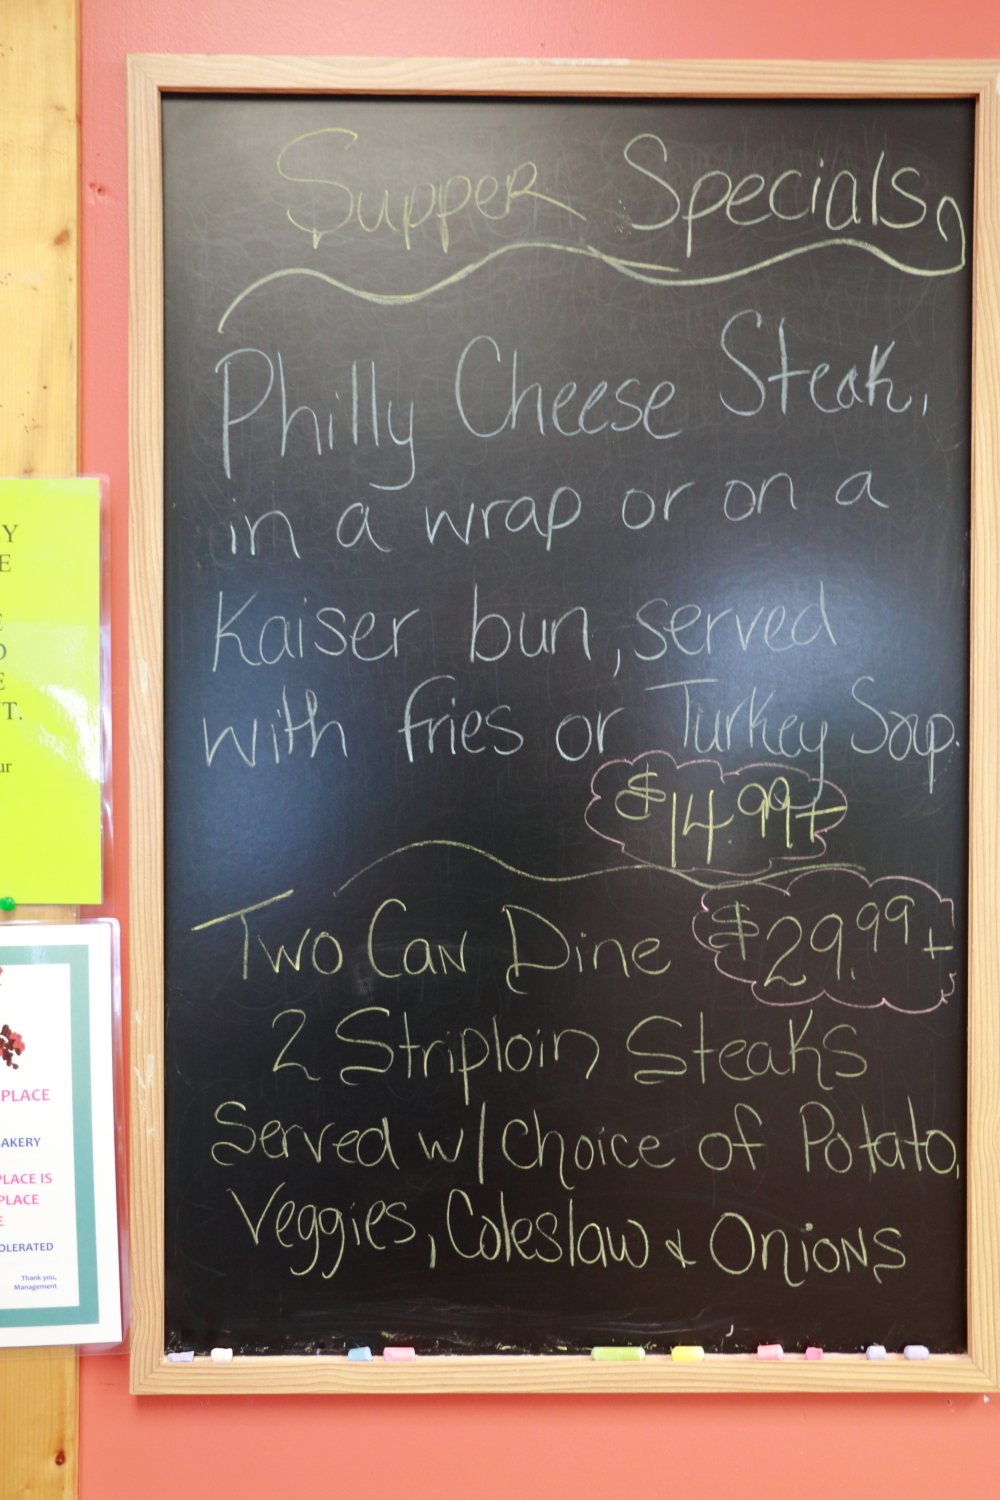 Supper Specials
Philly Cheese Steak,
in a wrap or on a
Kaiser bun, served
with fries or Turkey Soup.
$14.99+
Two Can Dine $29.99+
2 Striploin Steaks
Served w/ choice of Potato,
Veggies, Coleslaw & Onions
Y
E
E
D
E
T.
ur
PLACE
AKERY
PLACE IS
PLACE
E
OLERATED
Thank you,
Management